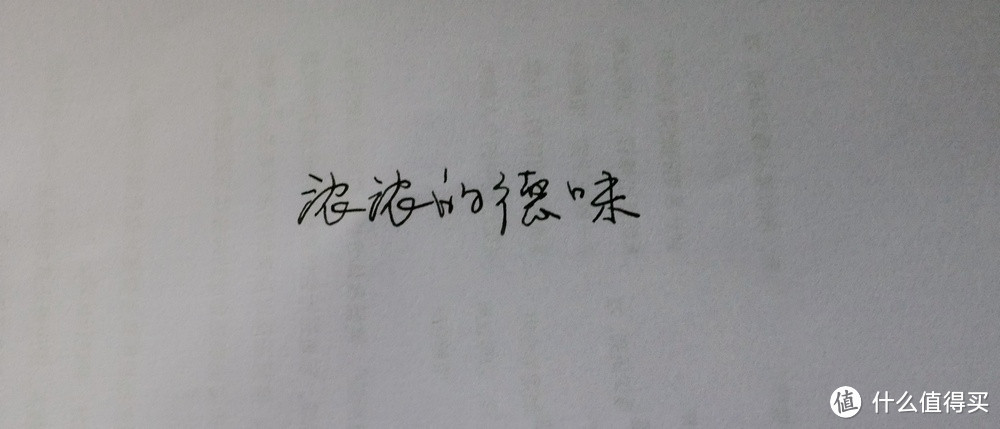 浓浓的德味
值 什么值得买